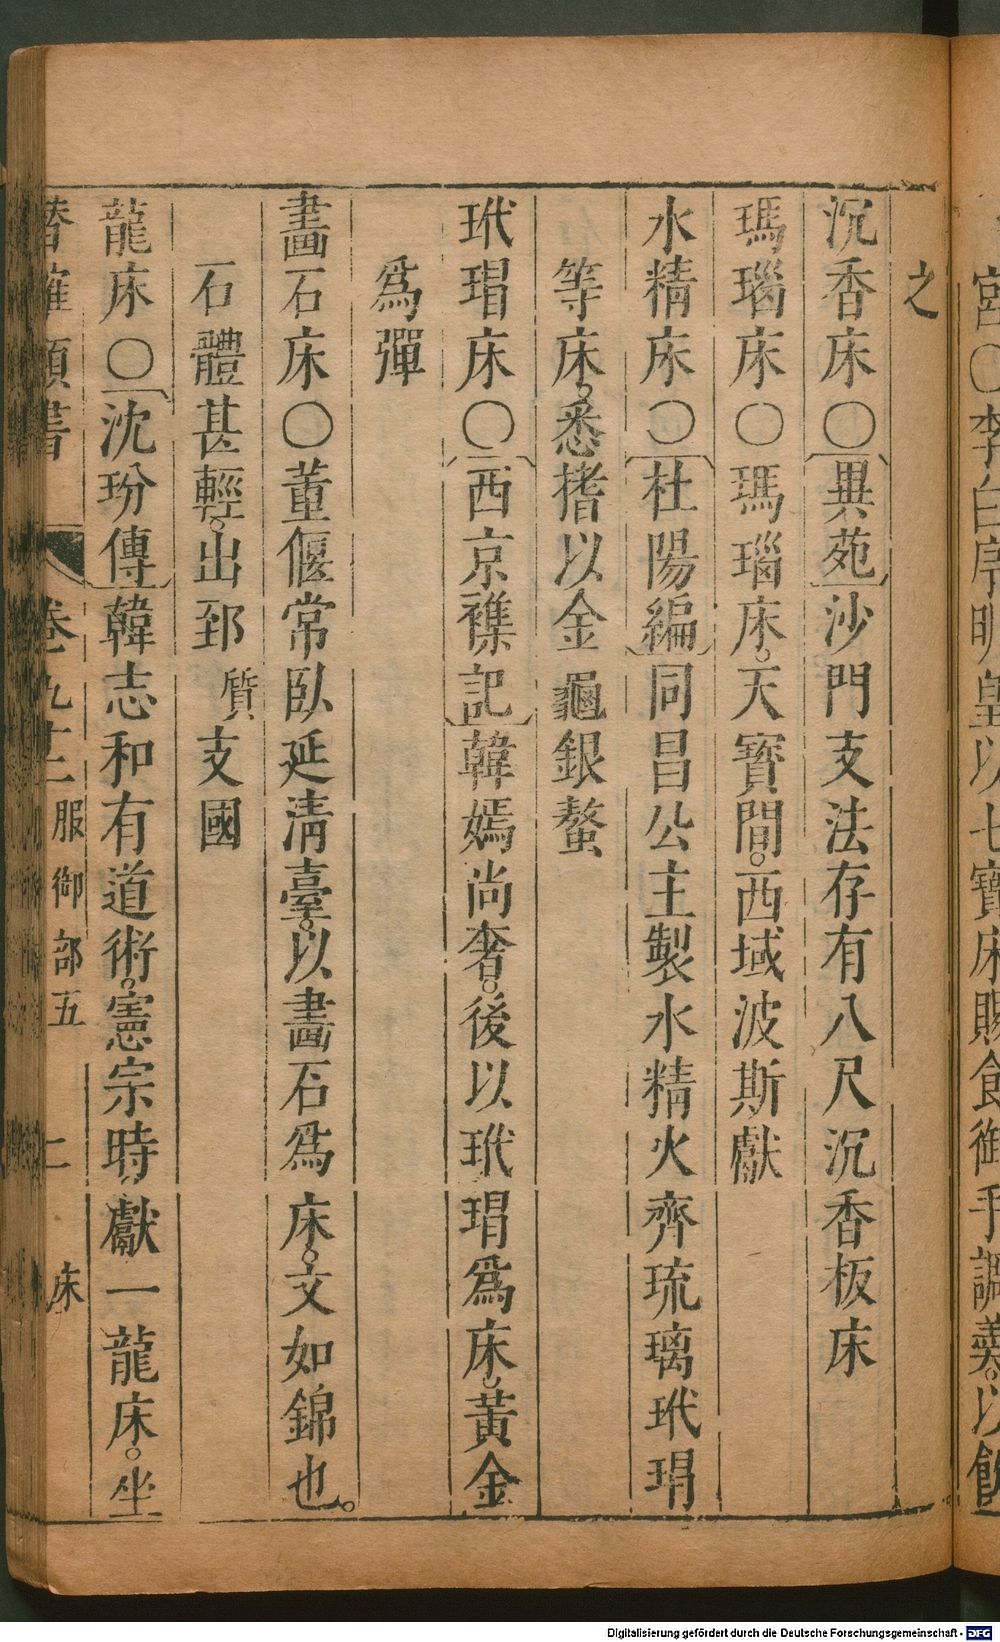 宮○李白序明皇以七寶床賜食御手調羹。以飯
之
沉香床○異苑沙門支法存有八尺沉香板床
瑪瑙床○瑪瑙床。天寶間。西域波斯獻
水精床○杜陽編同昌公主製水精火齊琉璃玳瑁
等床。悉㨋以金龜銀螯
玳瑁床○西京襍記韓嫣尚奢。後以玳瑁爲床。黃金
爲彈
畫石床○董偃常臥延淸臺。以畫石爲床。文如錦也。
石體甚輕。出郅質支國
龍床○沈玢傳韓志和有道術。憲宗時獻一龍床。坐
類書 卷九十二 服御部五 二 床
Digitalisierung gefördert durch die Deutsche Forschungsgemeinschaft - DFG